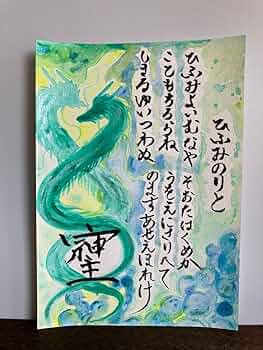 ひふみのりと
ひふみよいむなや
こともちろらね
しきるゆいつわぬ
そおたはくめか
うをえにさりへて
のますあせえほれけ